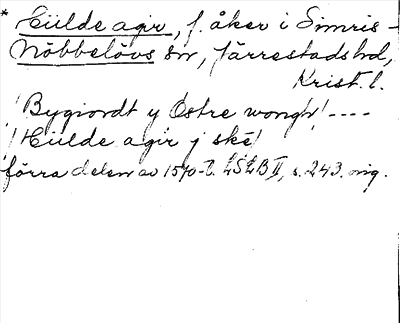 * Hülde agir, f. åker i Simris-
Nöbbelövs sn, Järrestads hd,
Krist. l.
! Bygiordt y Östre wongh! ----
! Hülde agir j ské!
förra delen av 1570-t. LSLB II, s. 243. orig.